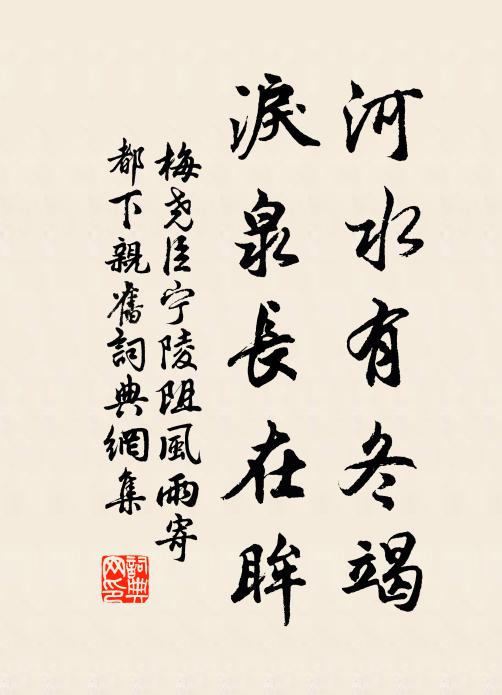 河水有冬竭
淚泉長在眸
梅尧臣宁陵阻風雨寄
都下親舊詞典網集
詞典网印